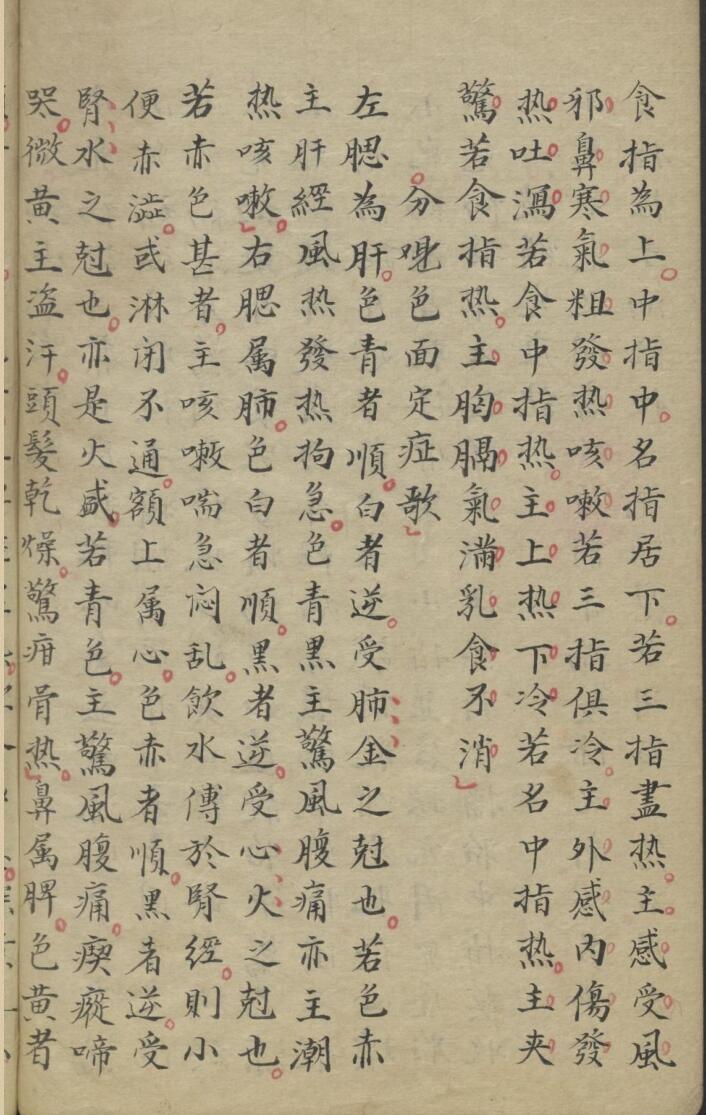 食指為上中指中名指居下若三指盡热主感受風
邪鼻寒氣粗發热咳嗽若三指俱冷主外感内傷發
热吐瀉若食中指热主上热下冷若名中指热主夾
驚若食指热主胸膈氣滿乳食不消
分娩色面定症歌
左腮為肝色青者順白者逆受肺金之尅也若色赤
主肝經風热發热拘急色青黑主驚風腹痛亦主潮
热咳嗽右腮属肺色白者順黑者逆受心火之尅也
若赤色甚者主咳嗽喘急闷乱飲水傳於腎經則小
便赤澁或淋闭不通額上属心色赤者順黑者逆受
腎水之尅也亦是火盛若青色主驚風腹痛瘈瘲啼
哭微黄主盗汗頭髮乾燥驚疳骨热鼻属脾色黄者